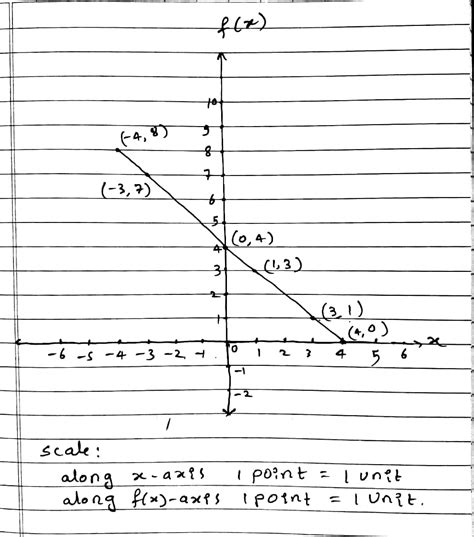 f(x)
10
9
(-4, 8)
8
7
(-3, 7)
6
5
(0, 4)
4
(1, 3)
3
2
(3, 1)
1
(4, 0)
-6 -5 -4 -3 -2 -1 0 1 2 3 4 5 6 x
-1
-2
scale:
along x-axis 1 point = 1 unit
along f(x)-axis 1 point = 1 unit.